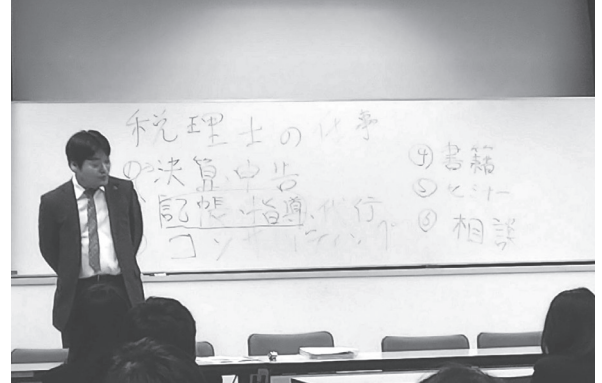 税理士の仕事
決算申告
記帳・指導、代行
コンサルティング
④ 書籍
⑤ セミナー
⑥ 相談